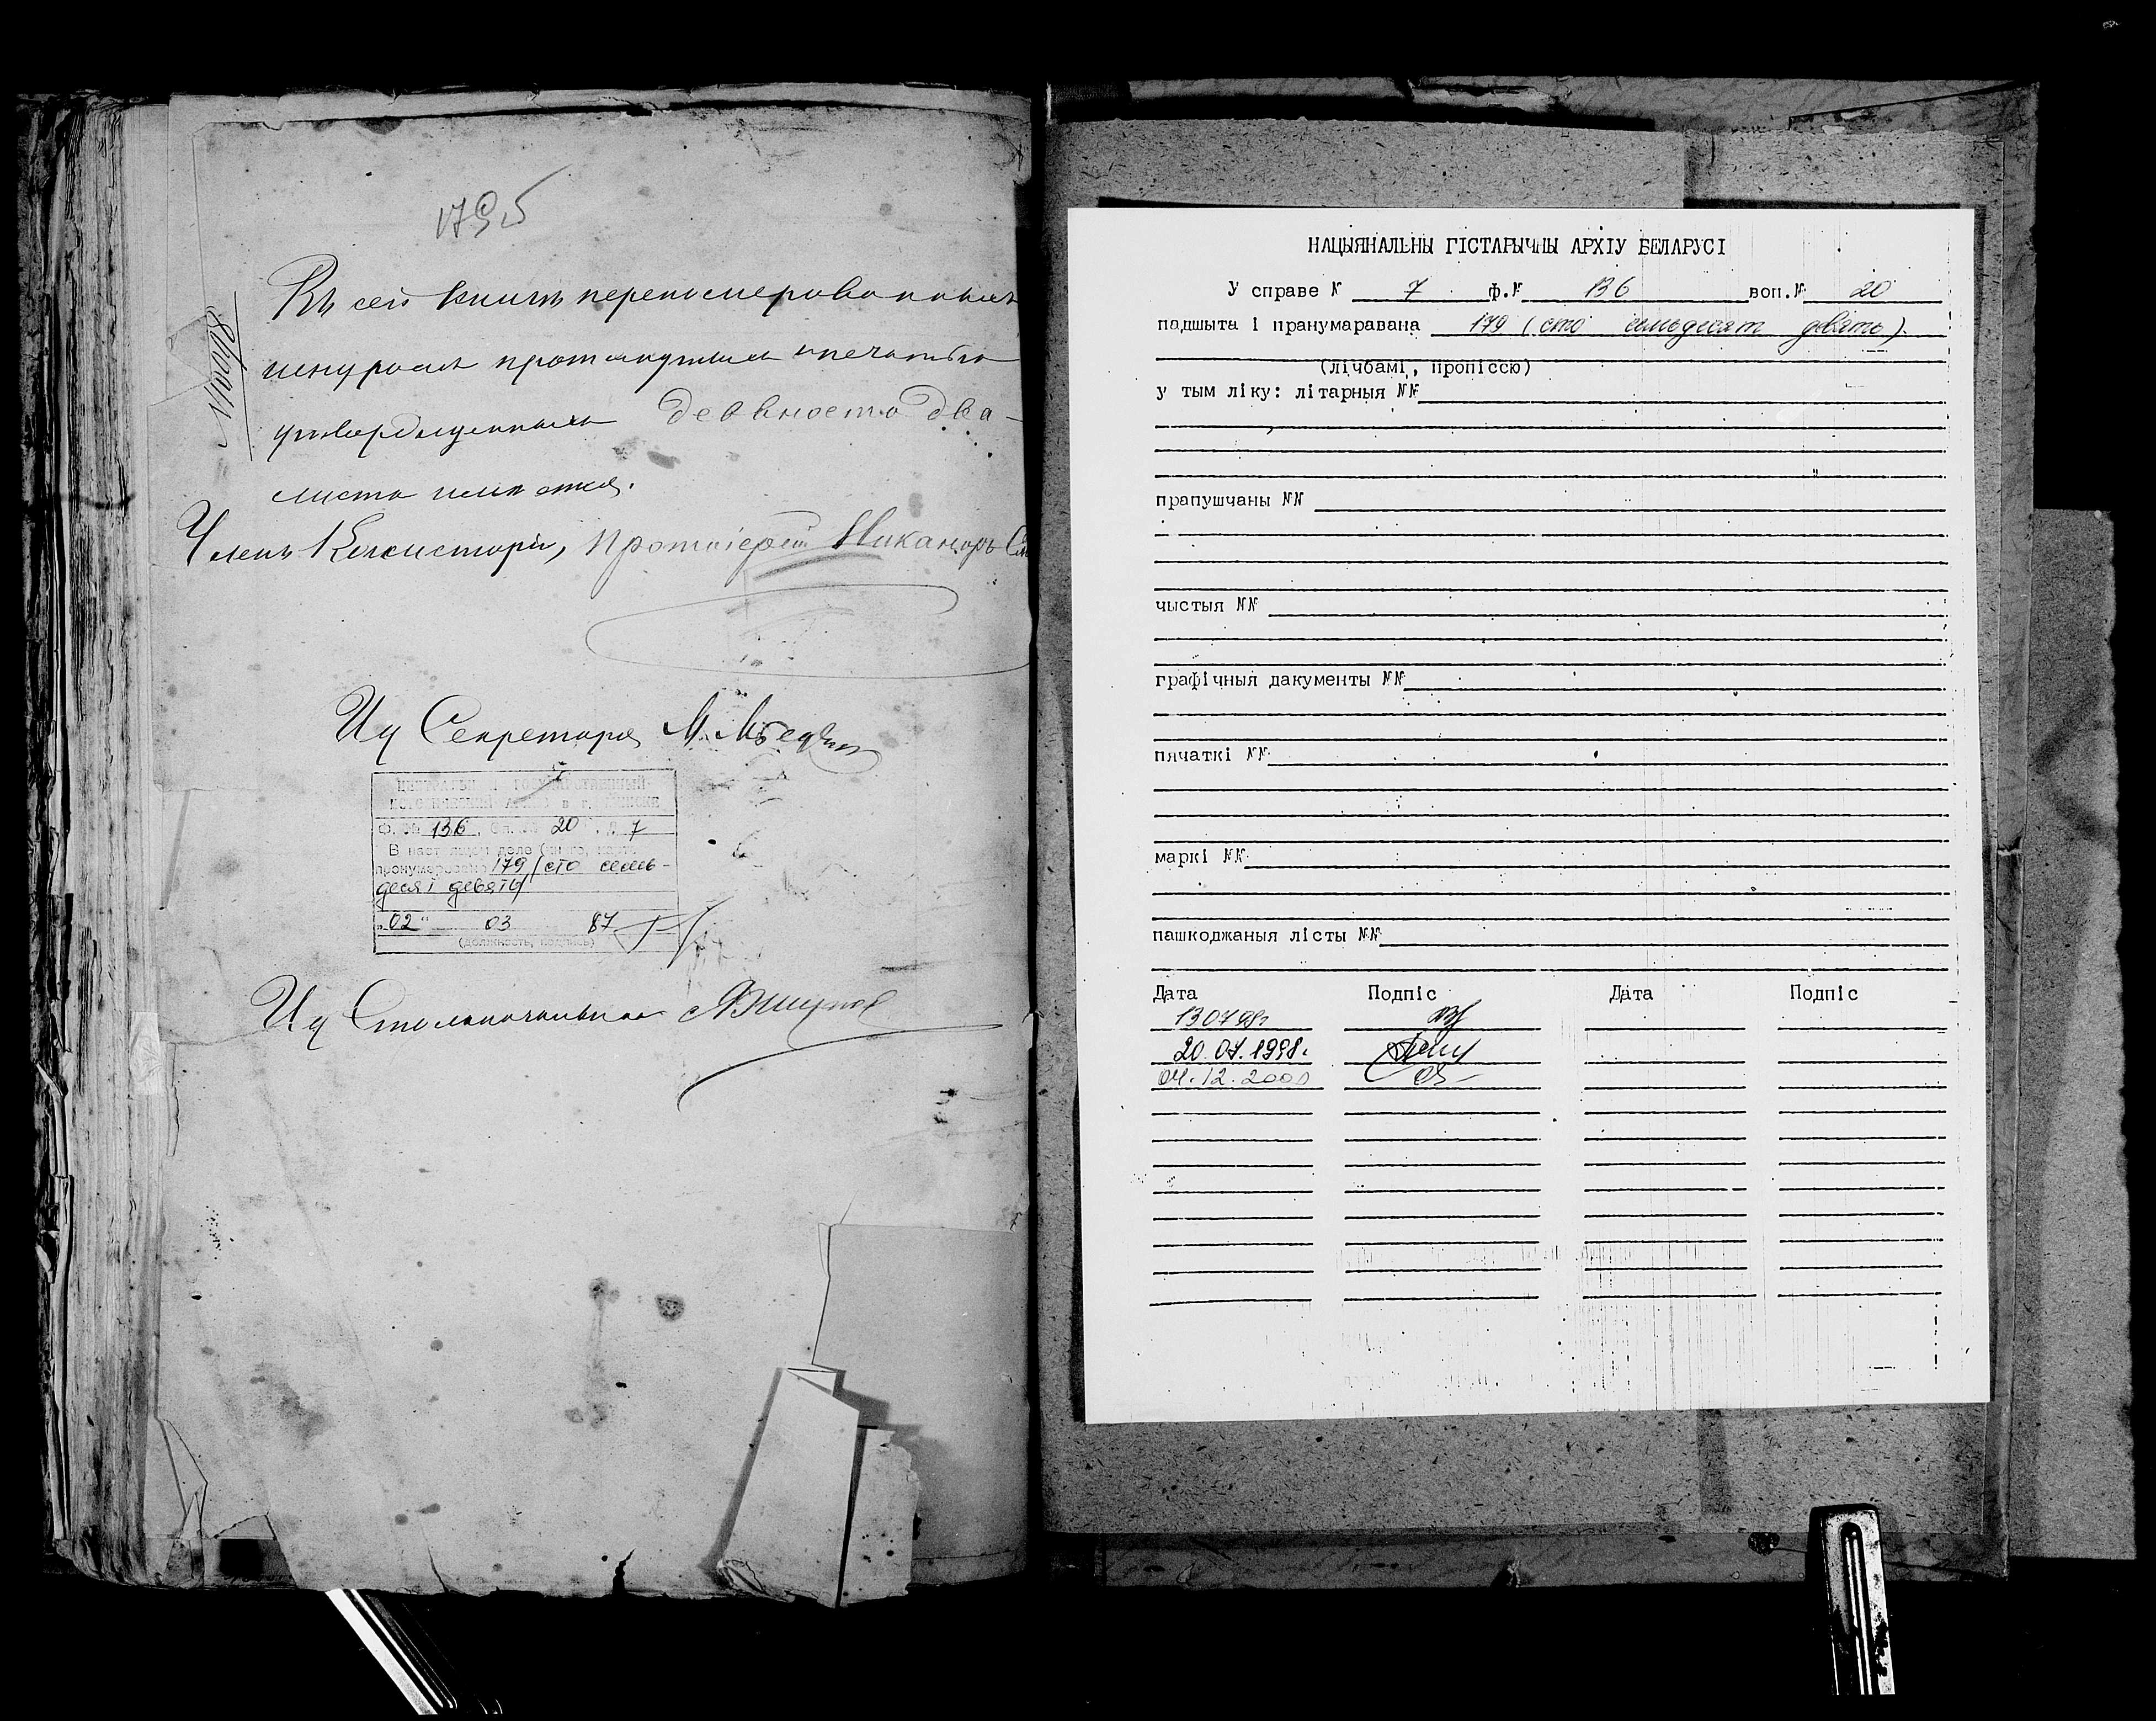 179об
Въ сей книгѣ перенумерованныхъ
шнуромъ протянутыхъ и печатью
утвержденныхъ девяносто два
листа
Членъ Консисторіи, Протоіерей Никаноръ
Ид Секретаря М.
ЦЕНТРАЛЬН Й ГОСУДАРСТВЕННЫЙ
ИСТОРИЧЕСКИЙ АРХИВ в г. МИНСКЕ
Ф. № 136. Оп. № 20. Д. 7
В наст ящем деле
пронумеровано 179 (сто семь-
десят девять)
„02“ 03 87
(должность, подпись)
Ид Столоначальника
НАЦЫЯНАЛЬНЫ ГІСТАРЫЧНЫ АРХІУ БЕЛАРУСІ
У справе № 7 ф.№ 136 воп.№ 20
падшыта і пранумаравана 179 (сто семьдесят девять).
(лічбамі, пропіссю)
у тым ліку: літарныя №№
прапушчаны №№
чыстыя №№
графічныя дакументы №№
пячаткі №№
маркі №№
пашкоджаныя лісты №№
Дата Подпіс Дата Подпіс
130798г
20.07.1998г.
04.12.2000